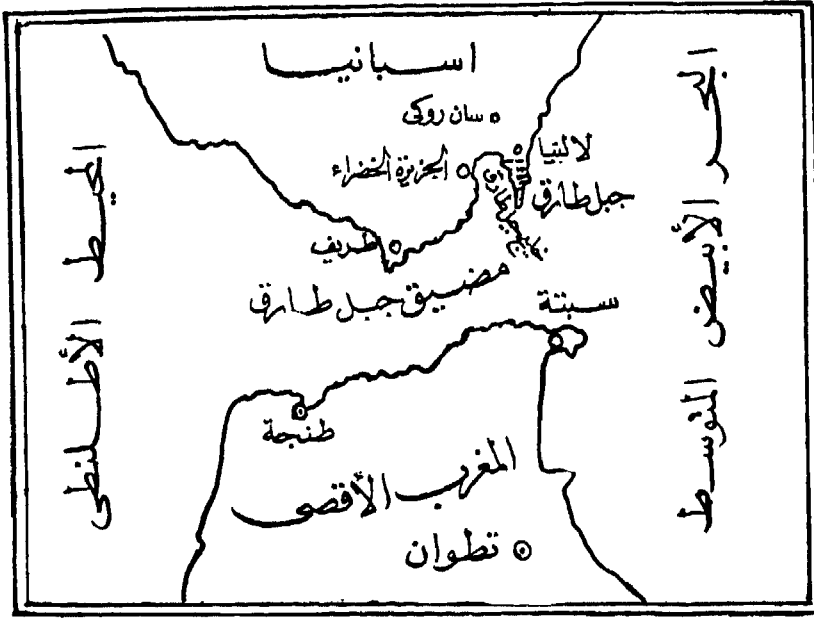 اسبانيا
سان روكى
لالنيا
الجزيرة الخضراء
جبل طارق
طريف
مضيق جبل طارق
سبتة
طنجة
المغرب الأقصى
تطوان
البحر الأبيض المتوسط
المحيط الأطلنطى